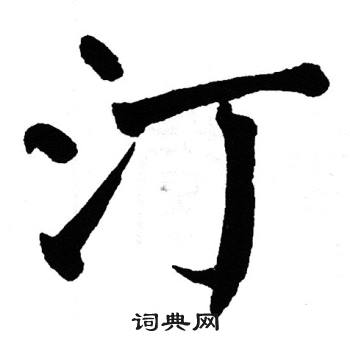 汀
词典网